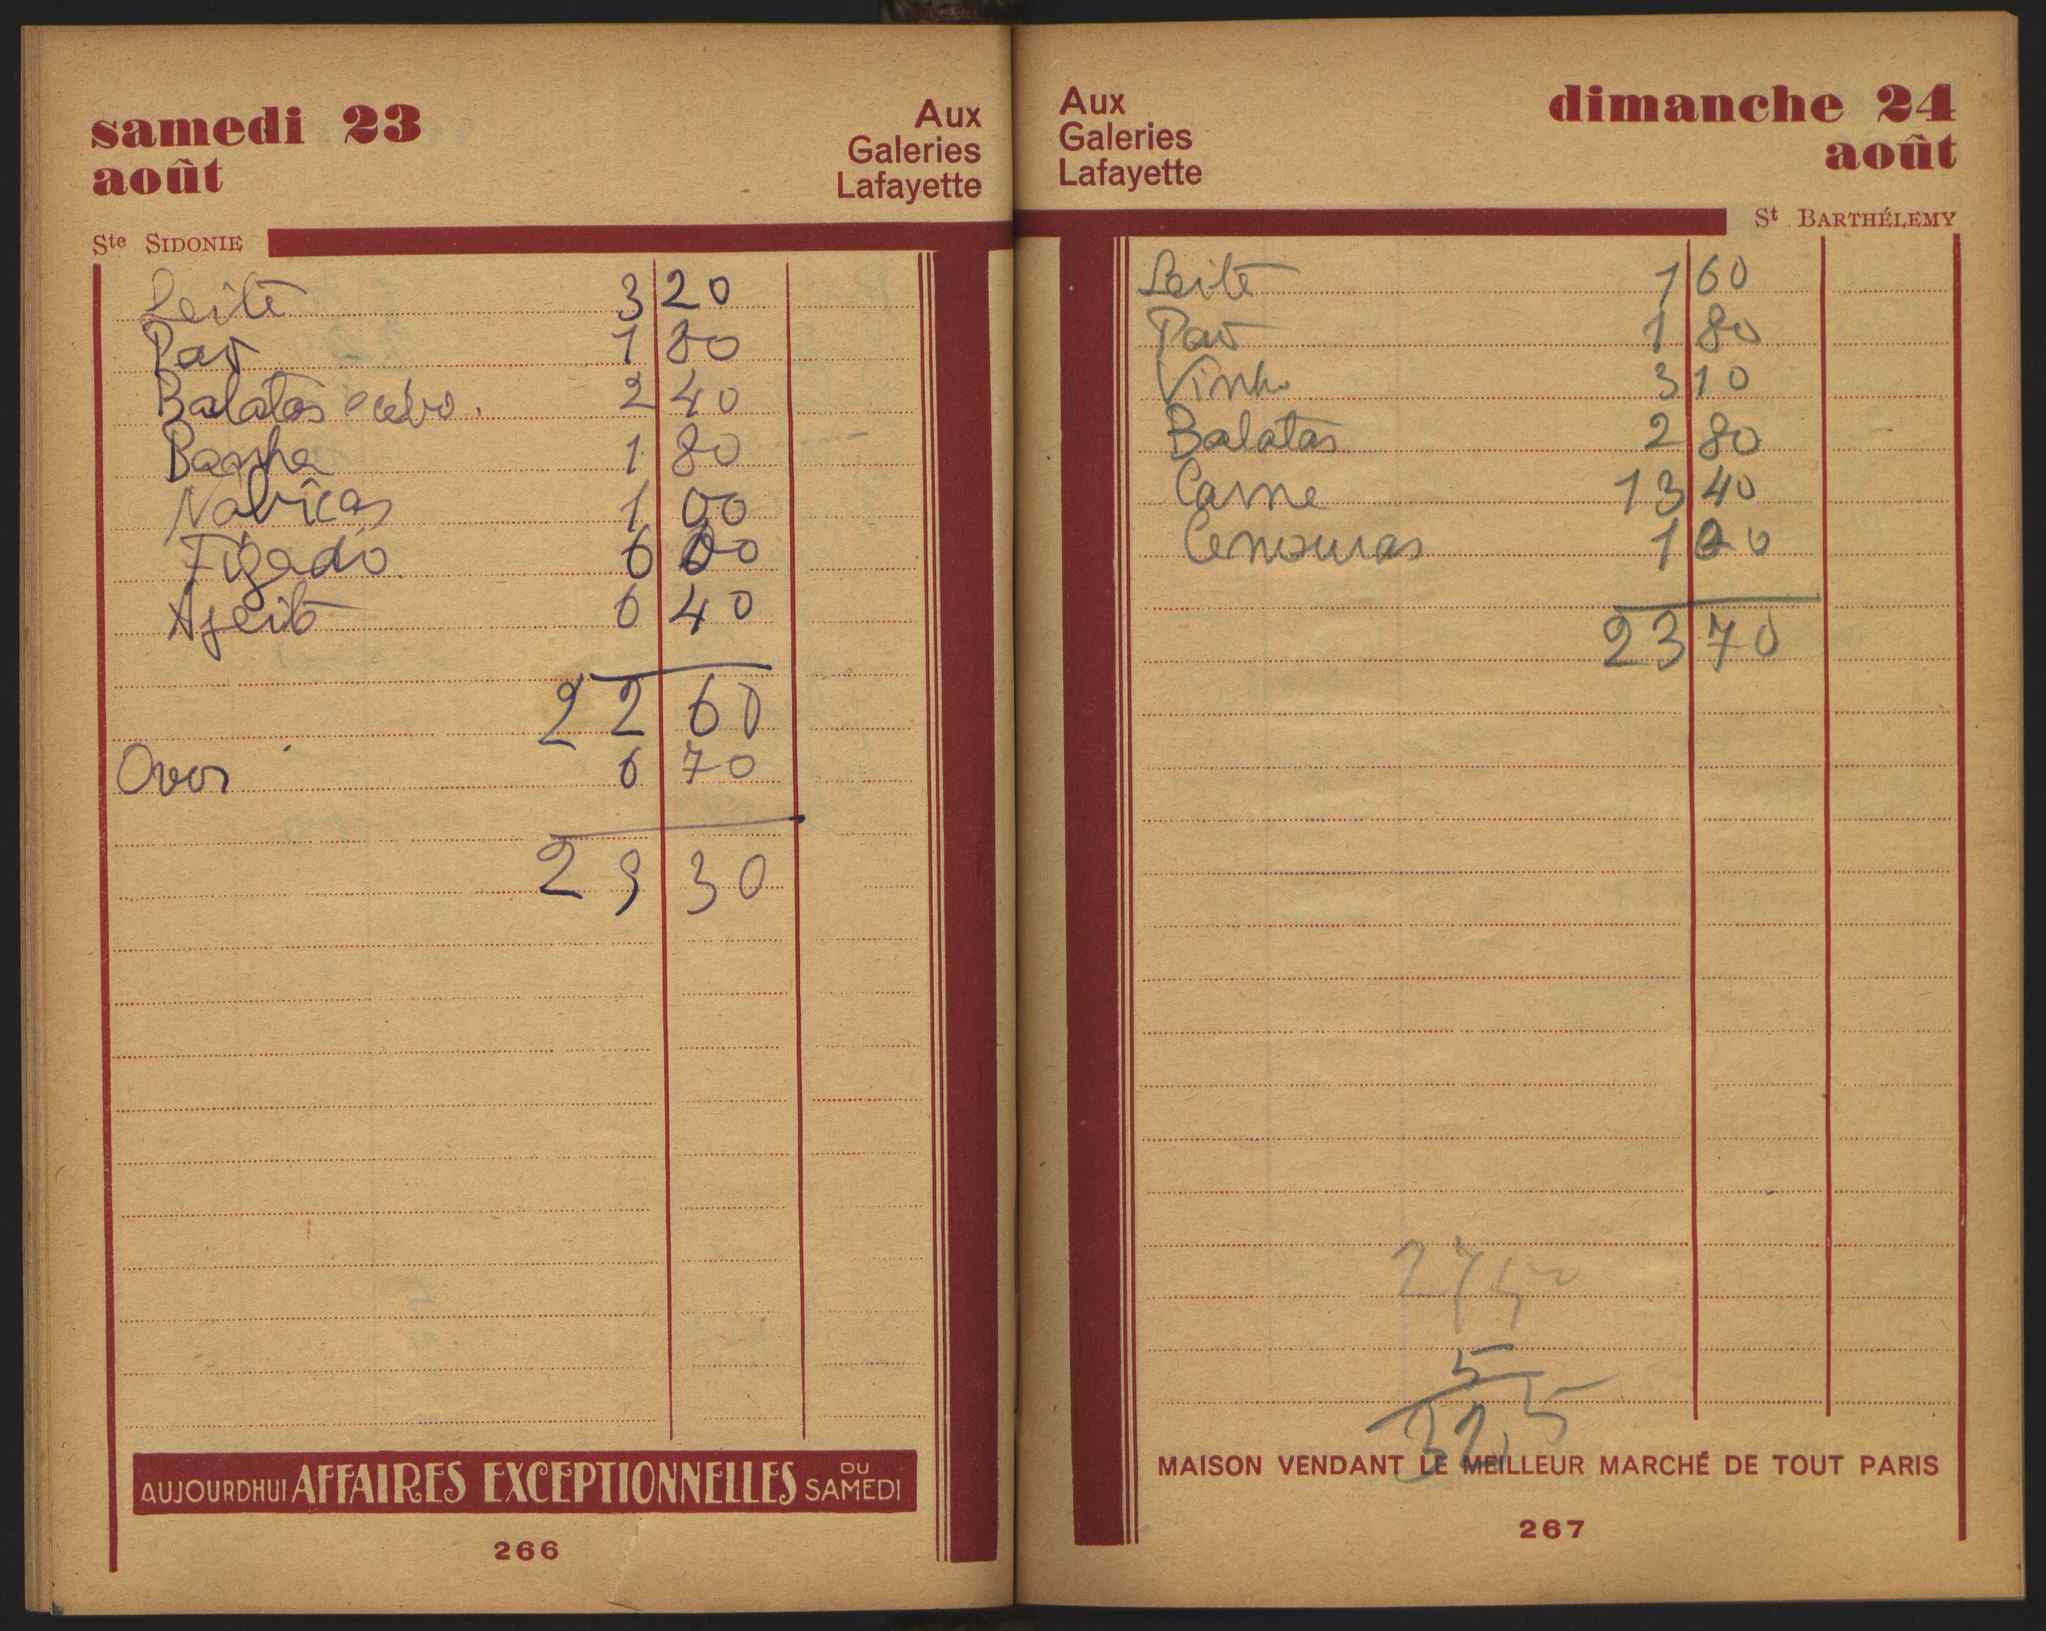 samedi 23
août
Aux
Galeries
Lafayette
Ste SIDONIE
Leite 3 20
Pao 1 80
Batatas e cebo. 2 40
Banha 1 80
Nabiças 1 00
Figado 6 00
Azeite 6 40
22 60
Ovos 6 70
29 30
AUJOURDHUI AFFAIRES EXCEPTIONNELLES DU SAMEDI
266
Aux
Galeries
Lafayette
dimanche 24
août
St BARTHÉLEMY
Leite 1 60
Pao 1 80
Vinho 3 10
Batatas 2 80
Carne 13 40
Cenouras 1 00
23 70
27,50
5
32,5
MAISON VENDANT LE MEILLEUR MARCHÉ DE TOUT PARIS
267